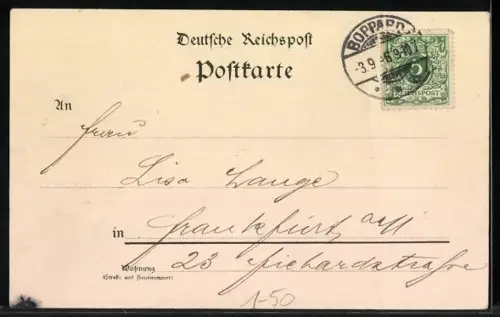 Deutsche Reichspost
Postkarte
BOPPARD
-3.9
REICHSPOST
An
Frau
Lisa Lange
in Frankfurt a/M
Wohnung
(Straße und Hausnummer)
23 Eichardstraße
1-50